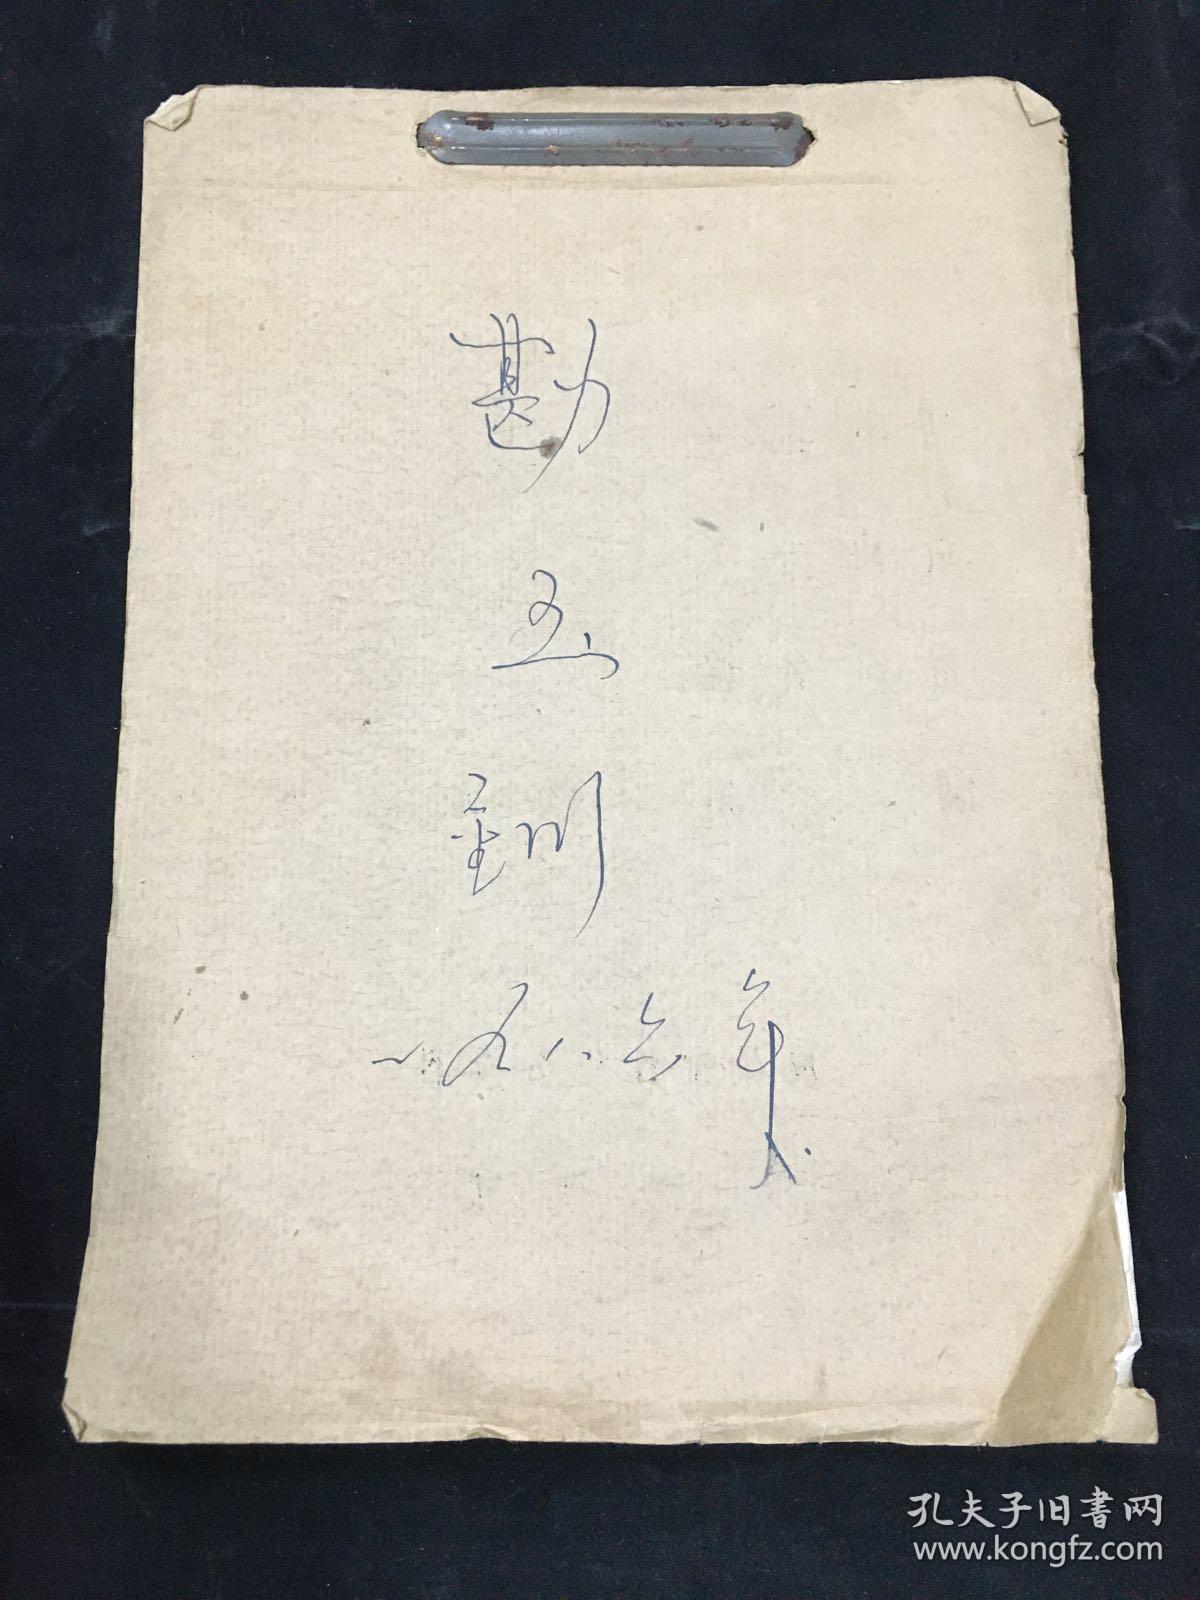 勘
玉
钏
一九八六年
孔夫子旧書网
www.kongfz.com